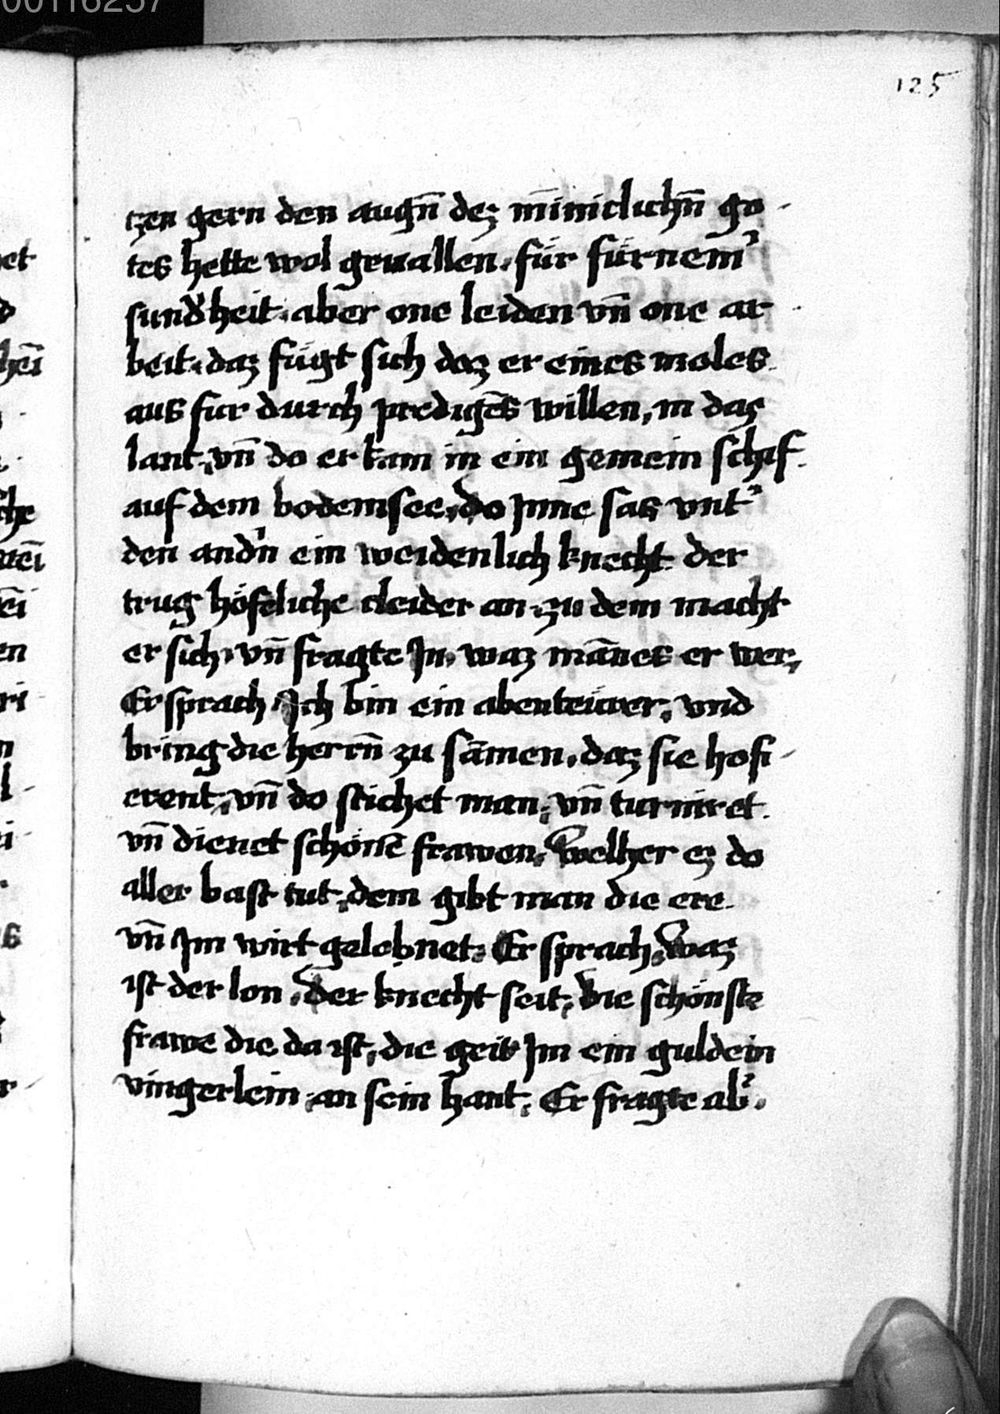 00116257
125
tzen gern den augn̄ dez m̄iniclichn̄ go
tes hette wol geuallen. für fürnem̾
sund̾heit. aber one leiden vn̄ one ar
beit. daz fügt sich daz er eines moles
aus fur durch predigēs willen, in daz
lant, vn̄ do er kam in ein gemein schif
auf dem bodemsee, do Jnne sas vnt̾
den and̾n ein weidenlich knecht der
trug höfeliche cleider an. zu dem macht
er sich, vn̄ fragte Jn, waz mānes er wer,
Er sprach Ich bin ein abenteürer, vnd
bring die herrn̄ zu sāmen, daz sie hofi
erent, vn̄ do stichet man, vn̄ turniret
vn̄ dienet schönē frawen, Welher ez do
aller bast tut, dem gibt man die ere
vn̄ Jm wirt gelohnet. Er sprach, Waz
ist der lon, Der knecht seit, Die schönste
frawe die da ist, die geit Jm ein guldein
vingerlein, an sein hant, Er fragte ab̾.